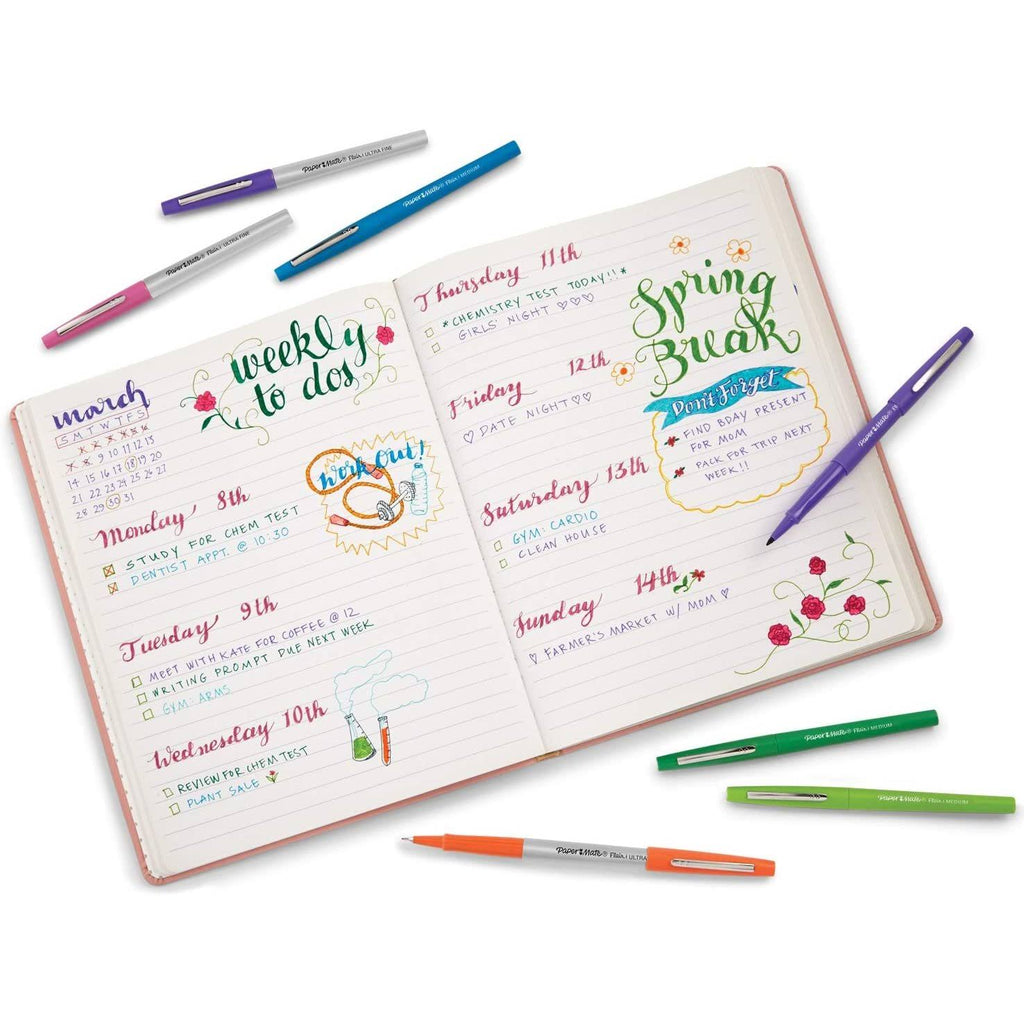 PAPER MATE® Flair. / ULTRA FINE
PAPER MATE® Flair. / MEDIUM
PAPER MATE® Flair. / ULTRA FINE
weekly
to dos
march
S M T W T F S
9 10 11 12 13
14 15 16 17 18 19 20
21 22 23 24 25 26 27
28 29 30 31
work out!
Monday 8th
STUDY FOR CHEM TEST
DENTIST APPT. @ 10:30
Tuesday 9th
MEET WITH KATE FOR COFFEE @ 12
WRITING PROMPT DUE NEXT WEEK
GYM: ARMS
Wednesday 10th
REVIEW FOR CHEM TEST
PLANT SALE
Thursday 11th
*CHEMISTRY TEST TODAY!!*
GIRLS' NIGHT ♡♡♡
Friday 12th
♡ DATE NIGHT ♡♡
Saturday 13th
GYM: CARDIO
CLEAN HOUSE
Sunday 14th
♡ FARMER'S MARKET W/ MOM ♡
Spring
Break
Don't Forget
FIND BDAY PRESENT
FOR MOM
PACK FOR TRIP NEXT
WEEK!!
PAPER MATE®
PAPER MATE® Flair. / MEDIUM
PAPER MATE® Flair. / MEDIUM
PAPER MATE® Flair. / ULTRA